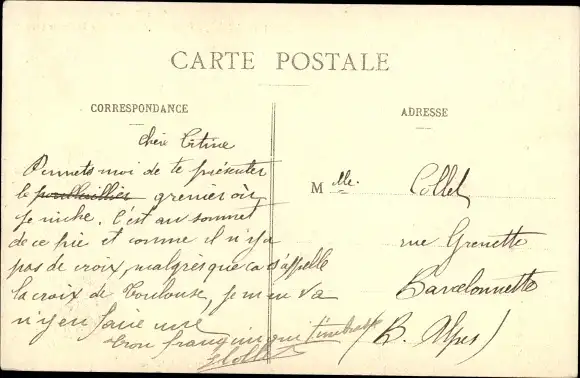 CARTE POSTALE
CORRESPONDANCE
Chère Titine
Permets moi de te présenter
le grenier où
je niche. C'est au sommet
de ce pic et comme il n'y a
pas de croix, malgrès que ca s'appelle
la croix de Toulouse, je m'en va
n'y en faire une
Ton frangin qui
Collet
ADRESSE
Mlle. Collet
rue Grenette
Barcelonnette
(B. Alpes)